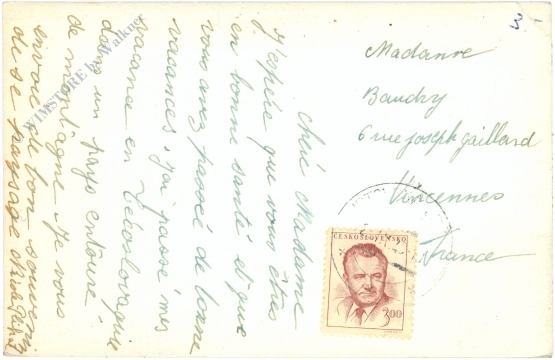 Chéé Madame
J'espère que vous êtes
en bonne santé et que
vous avez passé de bonne
vacances, j'ai passé mes
vacance en Tchécolovaquie
dans un pays entouré
de montagne. Je vous
envoie un bon souvenir
de se paysage
Madame
Baudry
6 rue joseph gaillard
Vincennes
France
3
ČESKOSLOVENSKO
3,00
WIMSTORE by Walkner